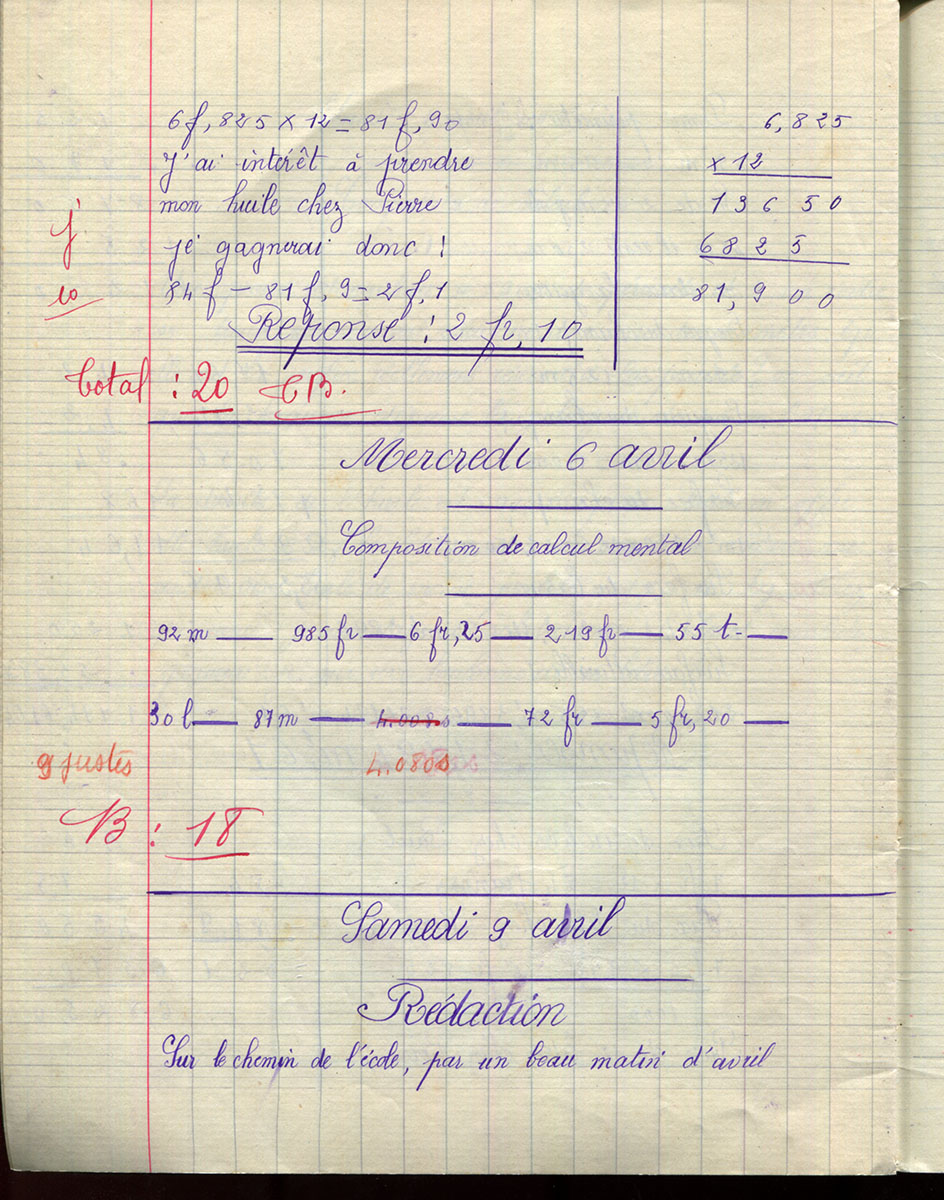 6f,825 × 12 = 81f,90
J'ai intérêt à prendre
mon huile chez Pierre
je gagnerai donc :
84f − 81f,9 = 2f,1
Réponse : 2 fr,10
6,825
× 12
13650
6825
81,900
j
10
Total : 20 TB.
Mercredi 6 avril
Composition de calcul mental
92m — 985fr — 6fr,25 — 219fr — 55 t —
30l — 87m — 4.008s — 72 fr — 5fr,20 —
9 justes 4.080s
B : 18
Samedi 9 avril
Rédaction
Sur le chemin de l'école, par un beau matin d'avril